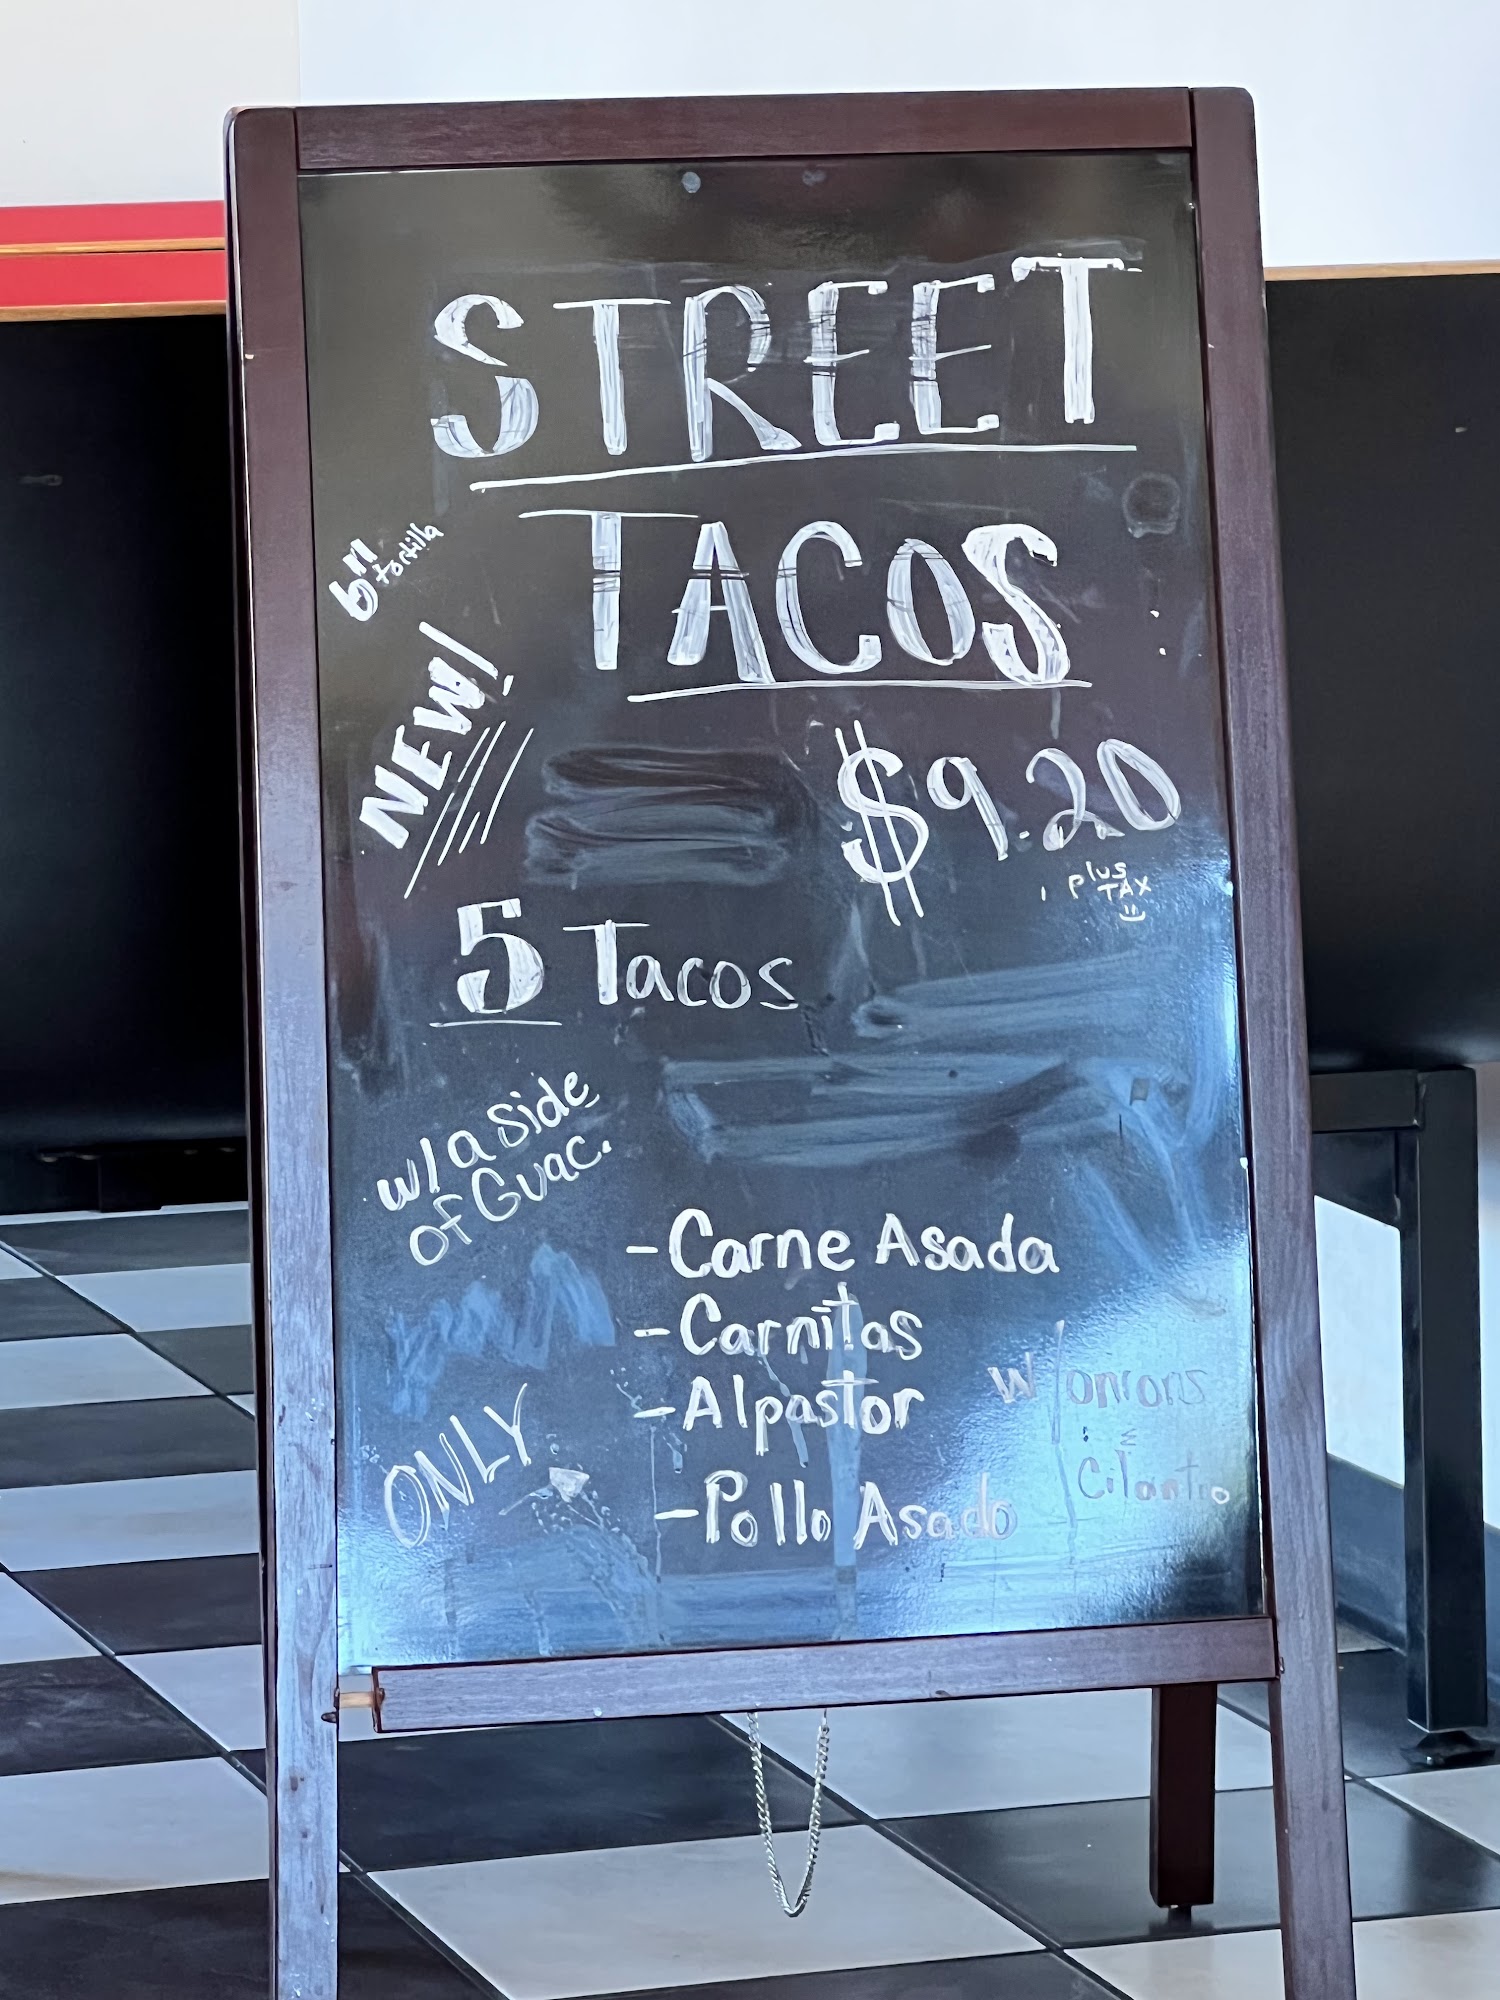 STREET
TACOS
6" tortilla
NEW!
$9.20
plus
TAX
5 Tacos
w/a side
of Guac.
-Carne Asada
-Carnitas
-Alpastor
-Pollo Asado
w/onions
&
Cilantro
ONLY